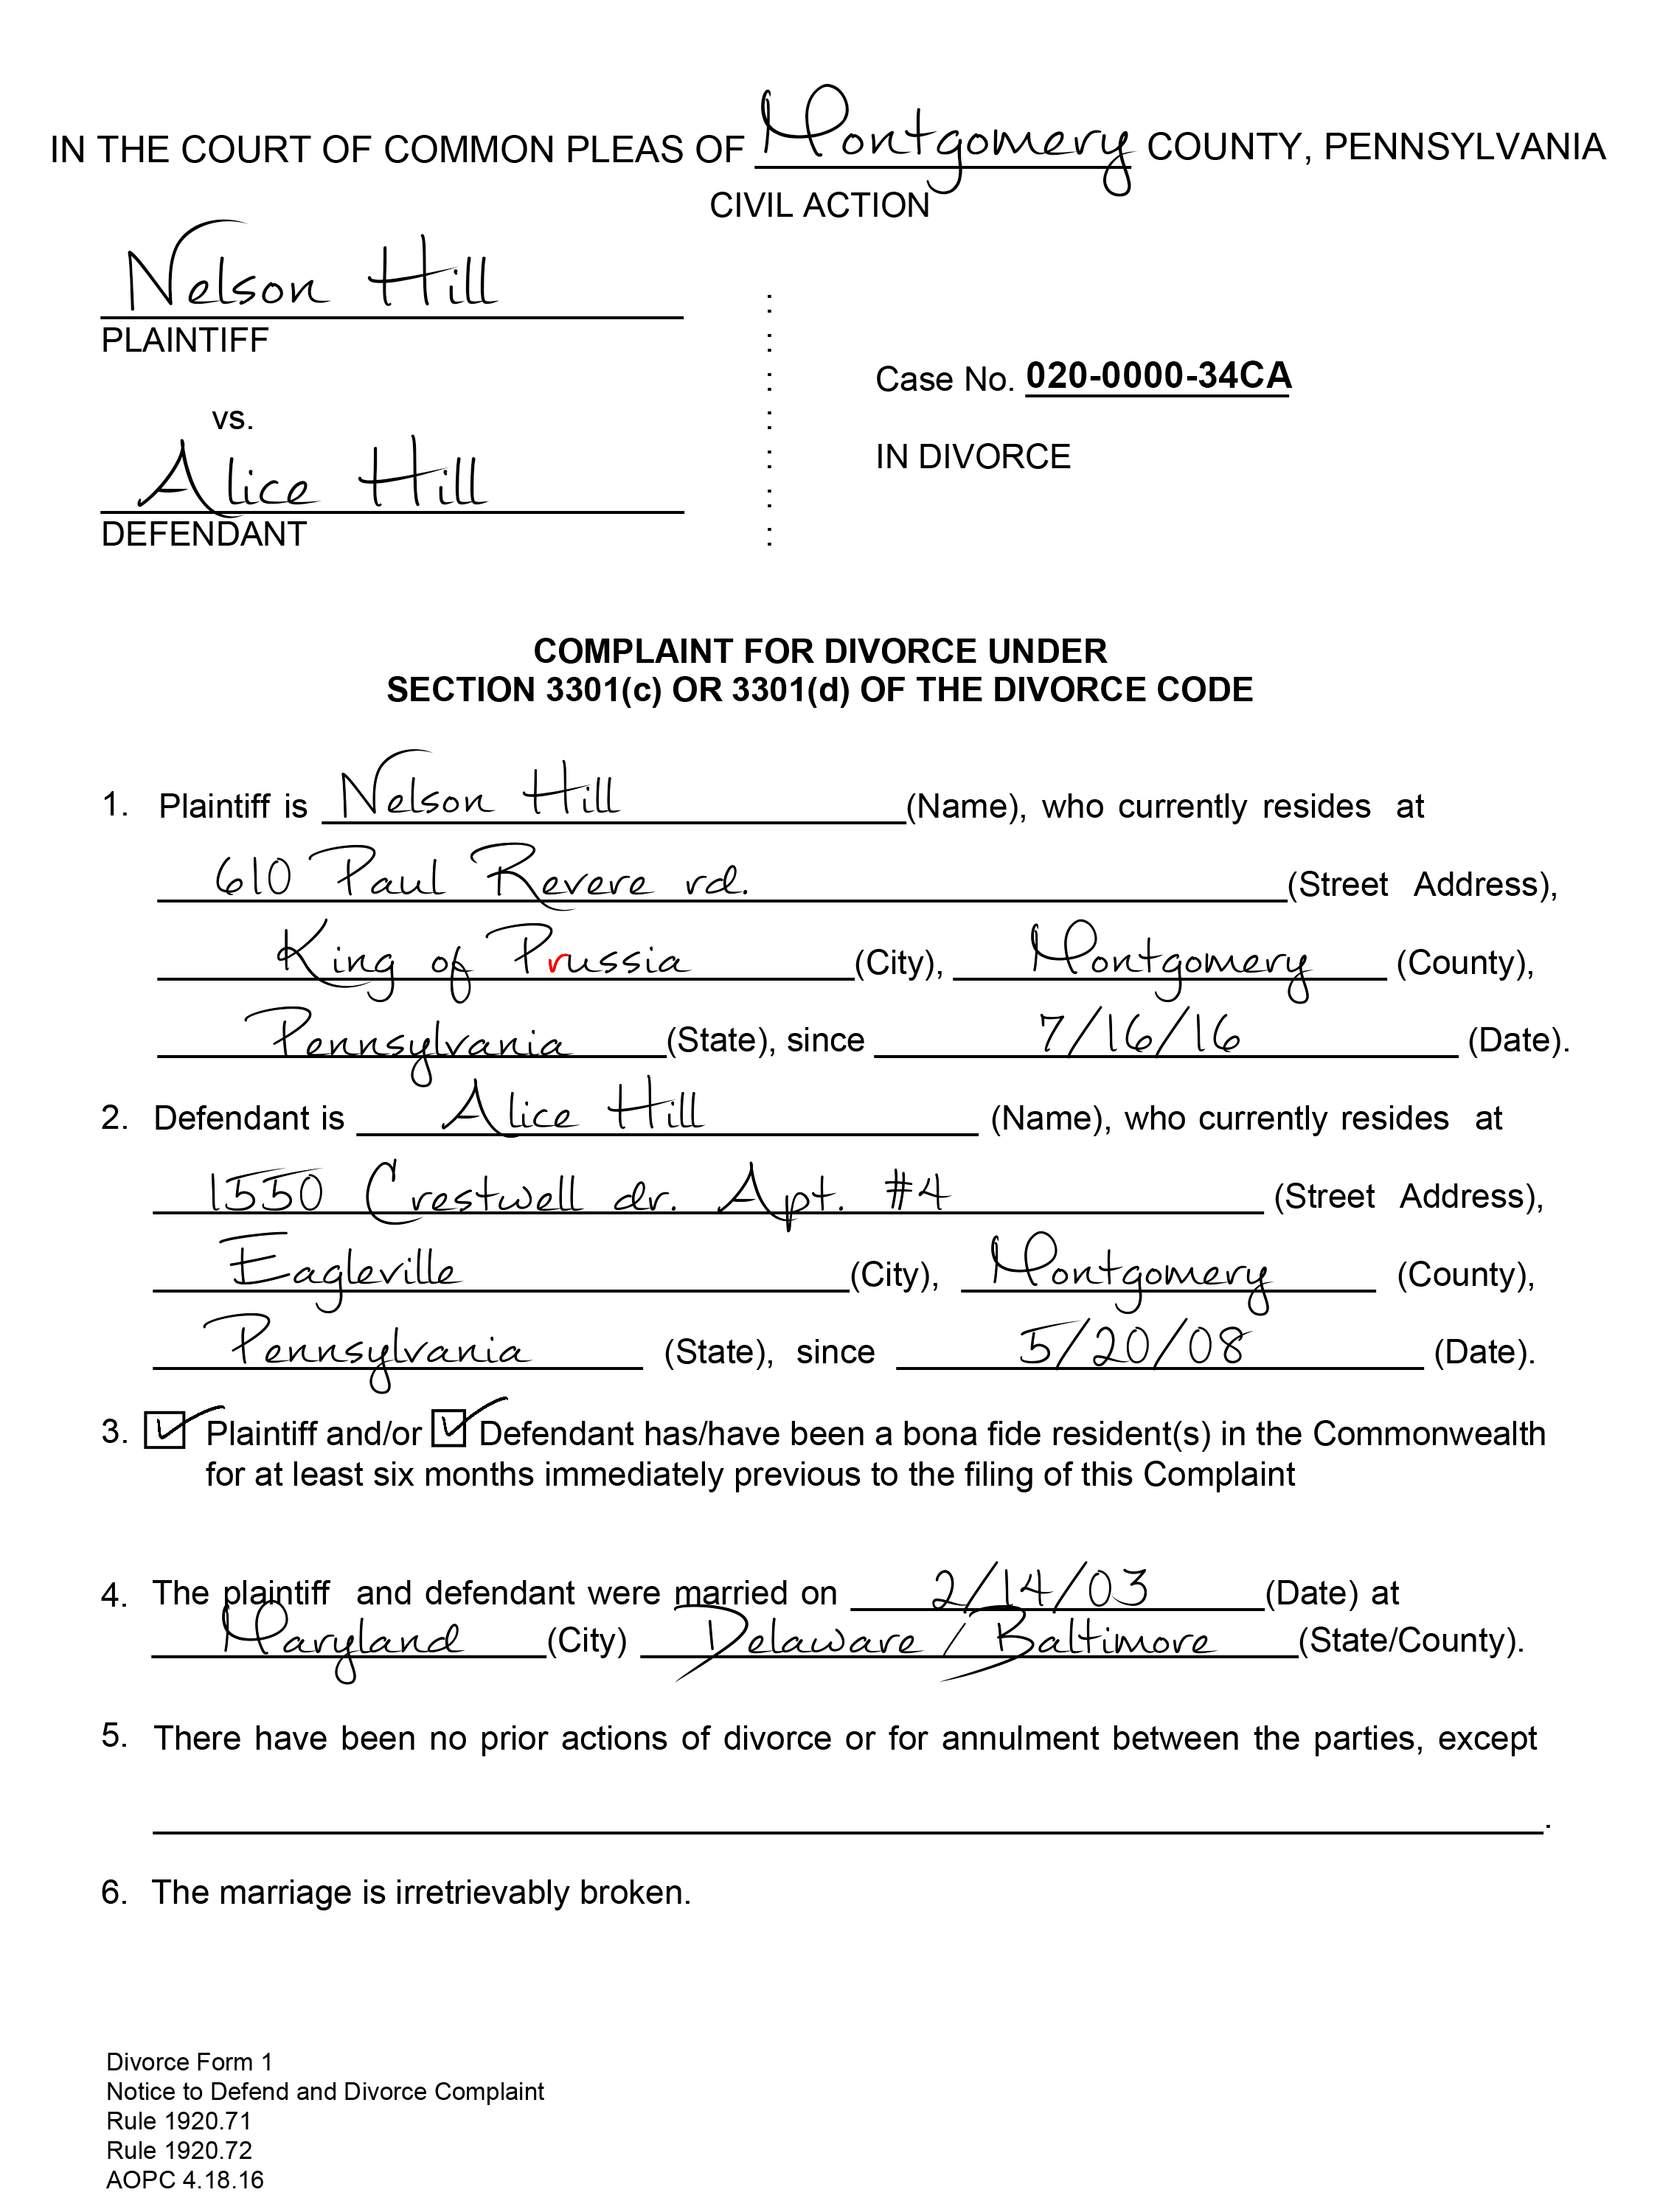 IN THE COURT OF COMMON PLEAS OF Montgomery COUNTY, PENNSYLVANIA
CIVIL ACTION
Nelson Hill
PLAINTIFF
vs.
Alice Hill
DEFENDANT
:
:
:
:
:
:
:
Case No. 020-0000-34CA
IN DIVORCE
COMPLAINT FOR DIVORCE UNDER
SECTION 3301(c) OR 3301(d) OF THE DIVORCE CODE
1. Plaintiff is Nelson Hill (Name), who currently resides at
610 Paul Revere rd. (Street Address),
King of Prussia (City), Montgomery (County),
Pennsylvania (State), since 7/16/16 (Date).
2. Defendant is Alice Hill (Name), who currently resides at
1550 Crestwell dr. Apt. #4 (Street Address),
Eagleville (City), Montgomery (County),
Pennsylvania (State), since 5/20/08 (Date).
3. ☑ Plaintiff and/or ☑ Defendant has/have been a bona fide resident(s) in the Commonwealth
for at least six months immediately previous to the filing of this Complaint
4. The plaintiff and defendant were married on 2/14/03 (Date) at
Maryland (City) Delaware / Baltimore (State/County).
5. There have been no prior actions of divorce or for annulment between the parties, except
.
6. The marriage is irretrievably broken.
Divorce Form 1
Notice to Defend and Divorce Complaint
Rule 1920.71
Rule 1920.72
AOPC 4.18.16